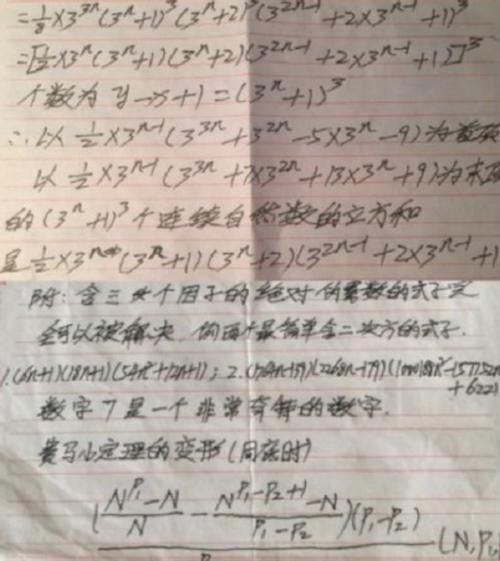 =⅛×3³ⁿ(3ⁿ+1)³(3ⁿ+2)³(3²ⁿ⁻¹+2×3ⁿ⁻¹+1)³
=[½×3ⁿ(3ⁿ+1)(3ⁿ+2)(3²ⁿ⁻¹+2×3ⁿ⁻¹+1)]³
个数为 y-x+1=(3ⁿ+1)³
∴以 ½×3ⁿ⁻¹(3³ⁿ+3²ⁿ-5×3ⁿ-9)为首项
以 ½×3ⁿ⁻¹(3³ⁿ+7×3²ⁿ+13×3ⁿ+9)为末项
的(3ⁿ+1)³个连续自然数的立方和
是½×3ⁿ(3ⁿ+1)(3ⁿ+2)(3²ⁿ⁻¹+2×3ⁿ⁻¹+1
附:含三个因子的绝对伪素数的式子完
全可以被解决 例两个最简单含二次方的式子.
1.(6n+1)(18n+1)(54n²+12n+1); 2.
+622)
数字7是一个非常奇怪的数字.
费马小定理的变形(周宸时)
(N^P₁-N/N - N^(P₁-P₂+1)-N/P₁-P₂)(P₁-P₂)
(N,P₁,